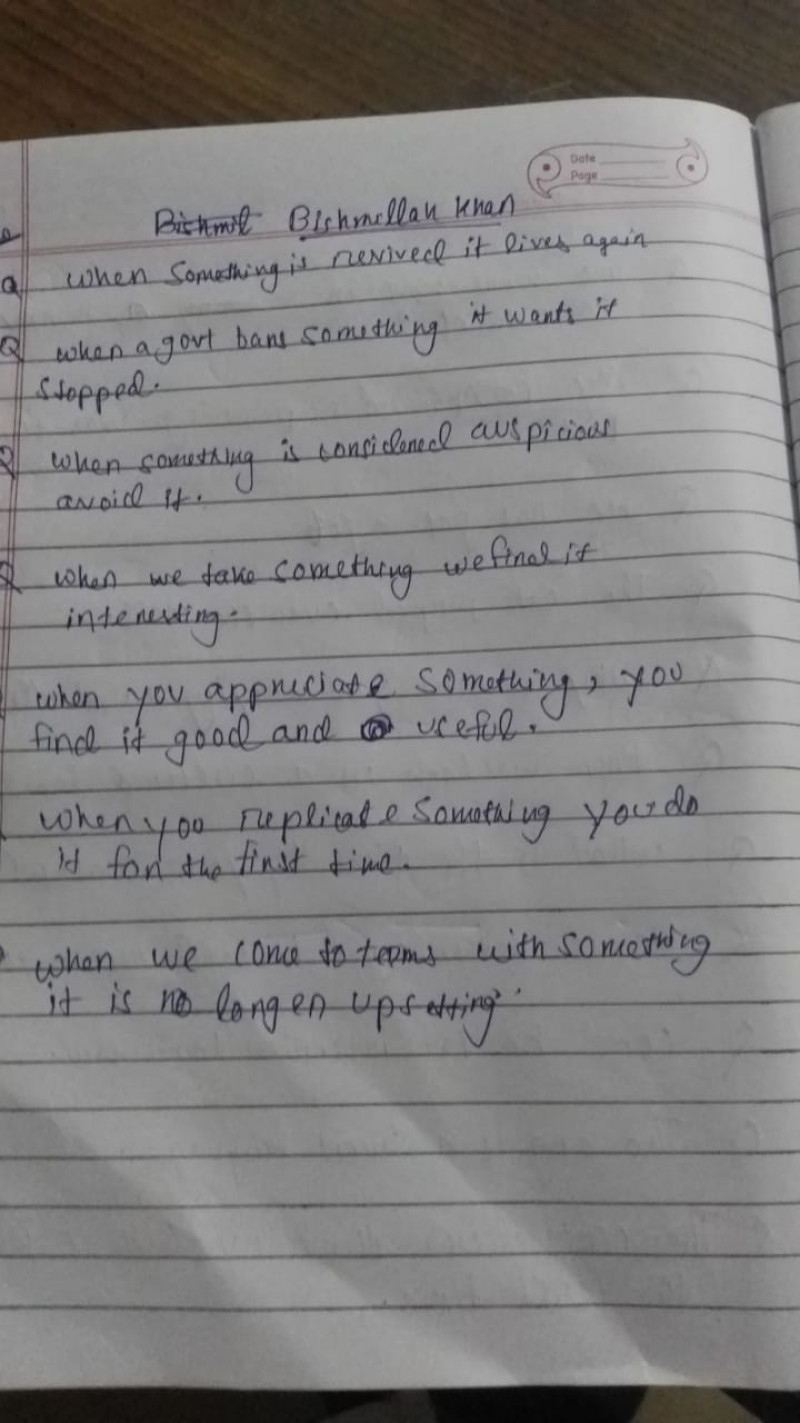 Date
Page
Bishmil Bishmillah Khan
Q when something is revived it lives again
Q when a govt bans something it wants it
stopped.
Q when something is considered auspicious
avoid it.
Q when we take something we find it
interesting.
when you appreciate something, you
find it good and useful.
when you replicate something you do
it for the first time.
when we come to terms with something
it is no longer upsetting.